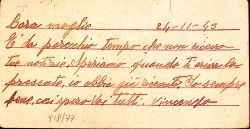 Cara moglie 24-11-43
È da parecchio tempo che non ricevo
tue notizie, Speriamo quando ti arriva la
presente, io abbia già ricevuto, Io sempre
bene, così spero voi tutti. Vincenzo
418/77